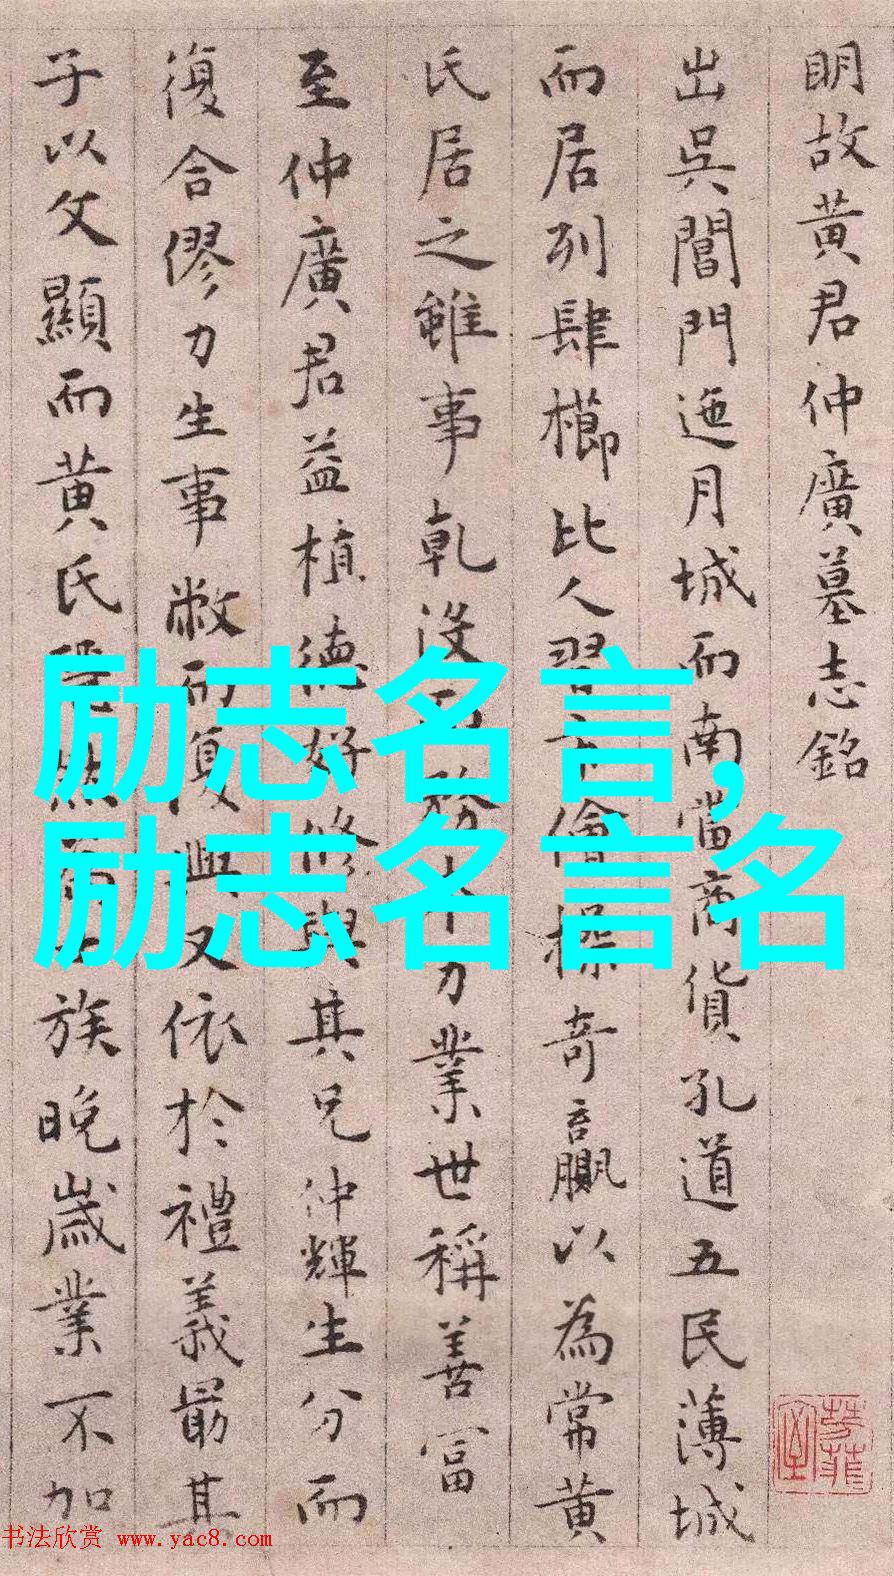 明故黄君仲廣墓志銘
出吳閶門迤月城而南當商貨孔道五民薄城
而居列肆櫛比人習儈操奇贏以為常黄
氏居之雖事乾沒而務力業世稱善富
至仲廣君益植德好修與其兄仲輝生分而
復合僇力生事敝而復興又依於禮義最其
子以文顯而黄氏族晚歲業不加
励志名言,
励志名言名
书法欣赏 www.yac8.com